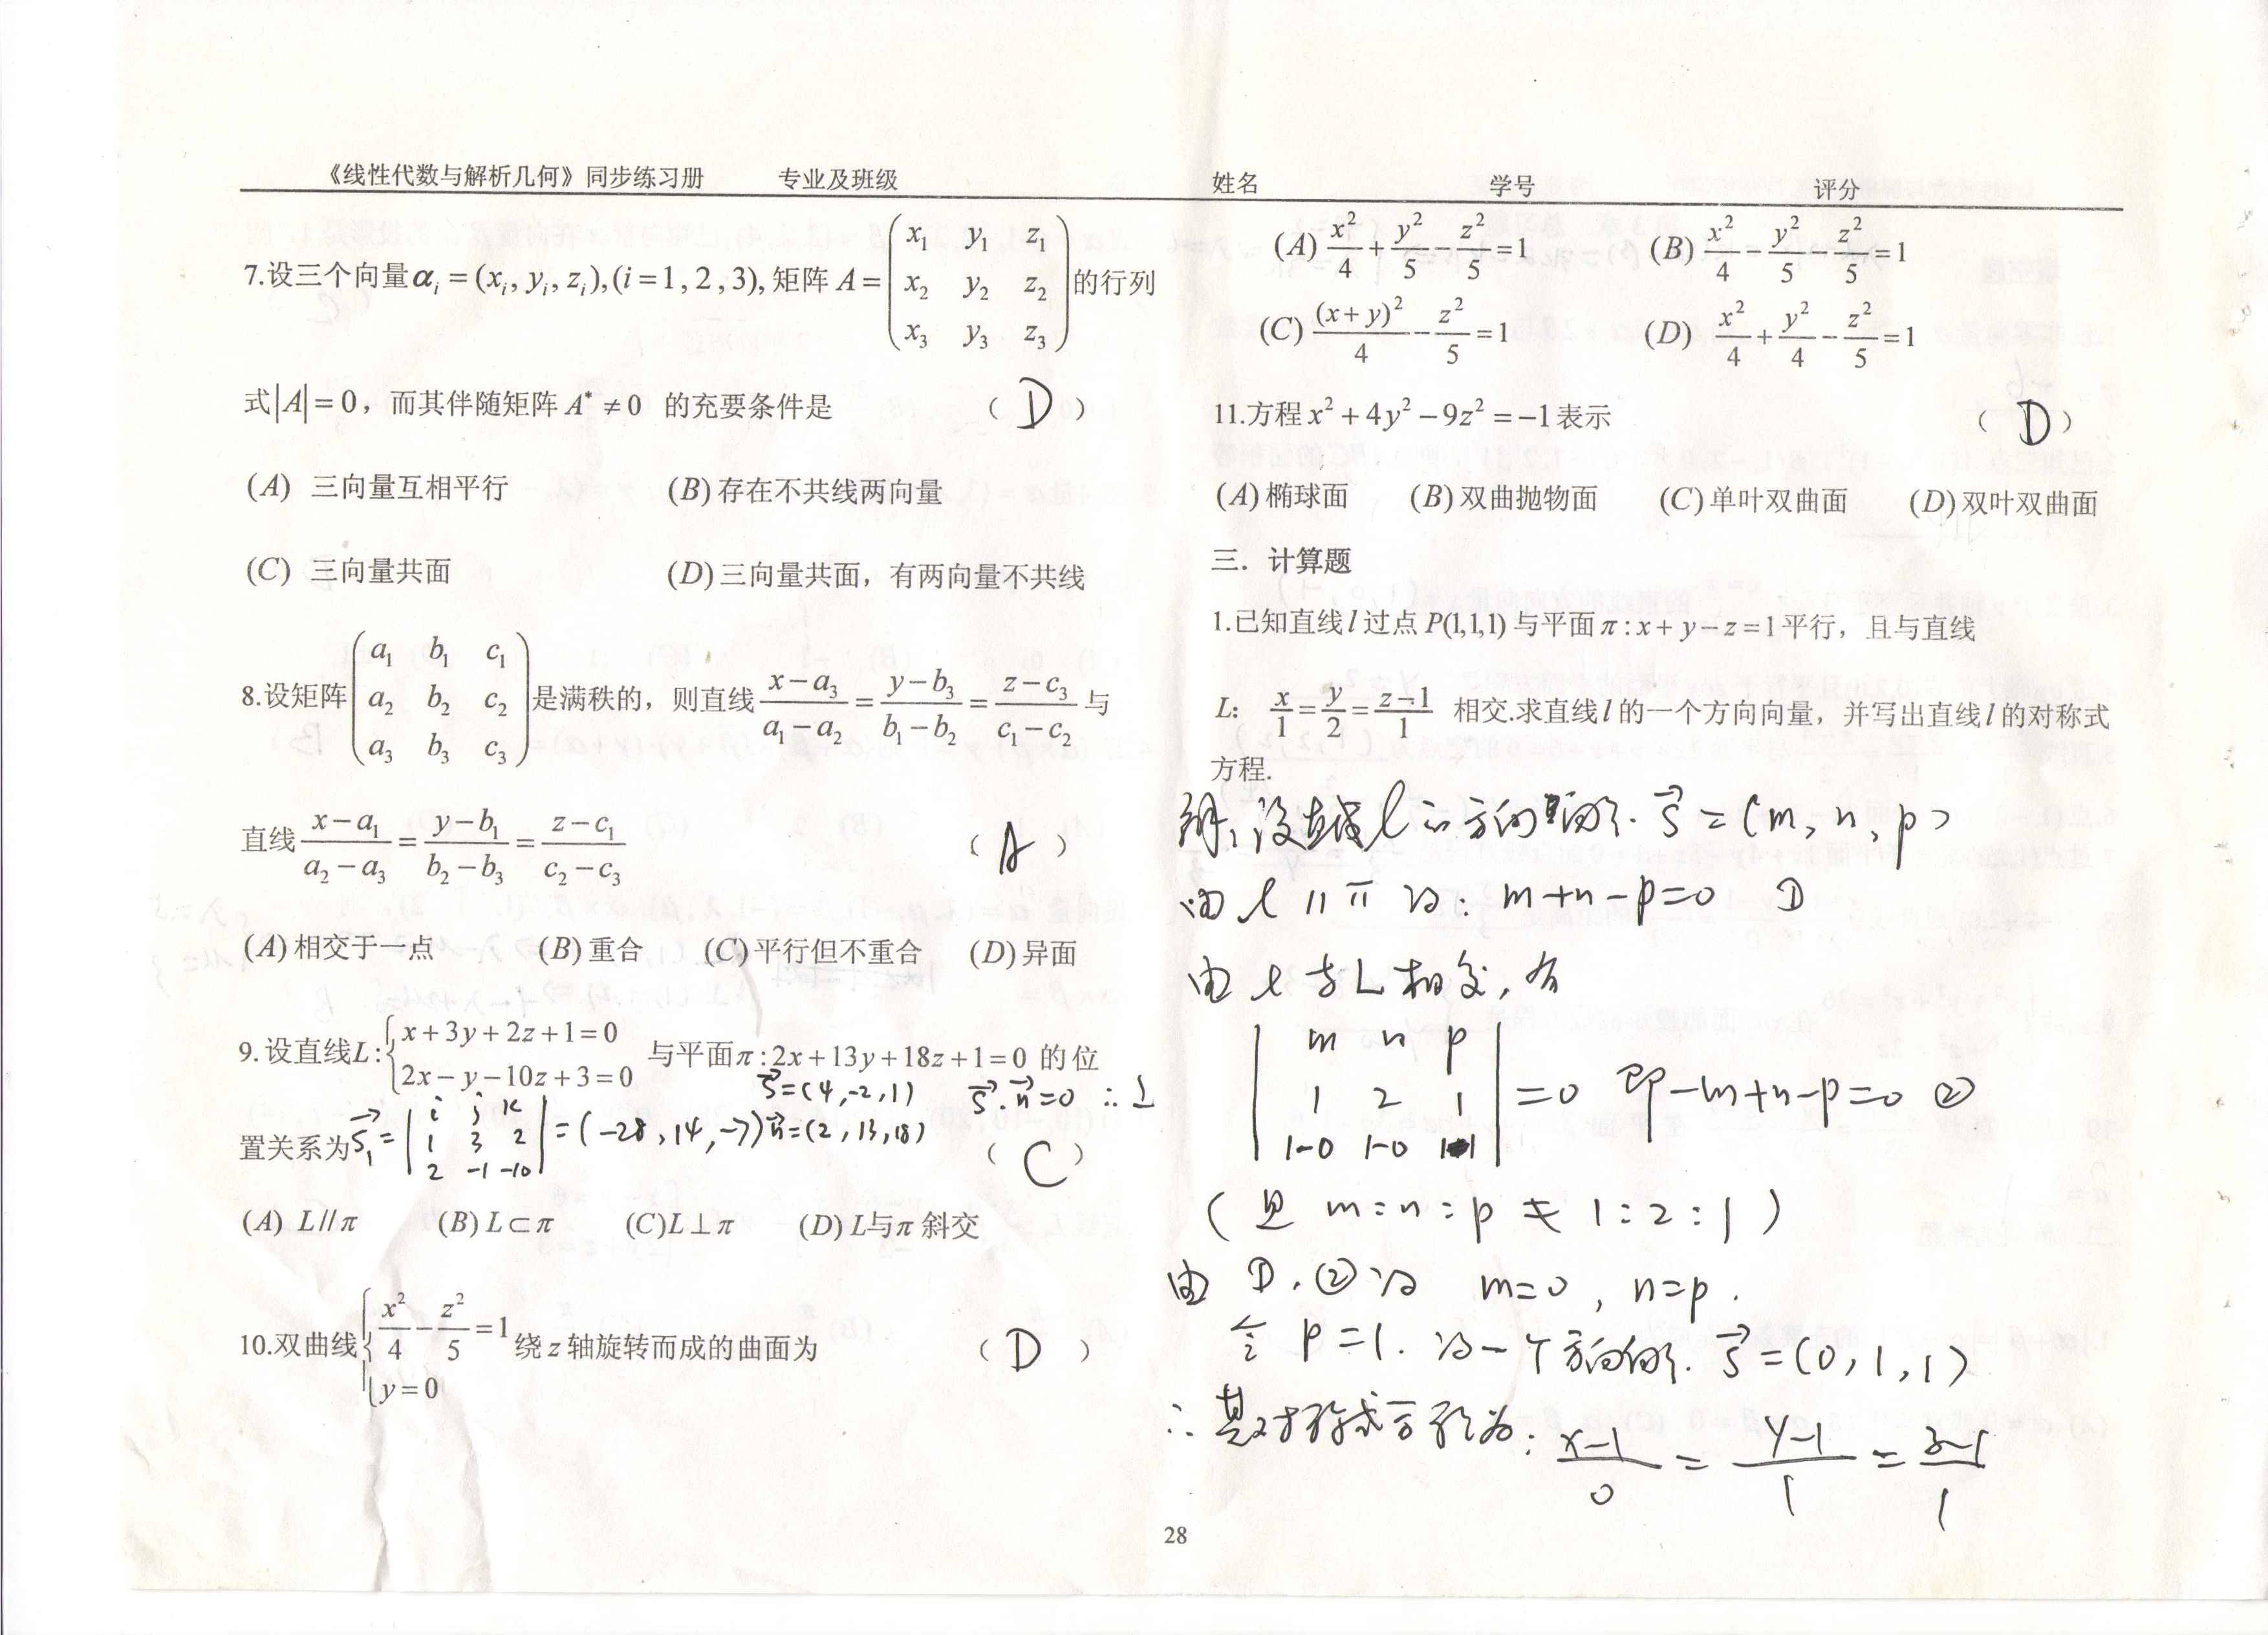 《线性代数与解析几何》同步练习册 专业及班级 姓名 学号 评分
7.设三个向量αᵢ=(xᵢ, yᵢ, zᵢ),(i=1,2,3),矩阵 A=(x₁ y₁ z₁; x₂ y₂ z₂; x₃ y₃ z₃)的行列
式|A|=0，而其伴随矩阵 A*≠0 的充要条件是 （ D ）
(A) 三向量互相平行 (B) 存在不共线两向量
(C) 三向量共面 (D) 三向量共面，有两向量不共线
8.设矩阵(a₁ b₁ c₁; a₂ b₂ c₂; a₃ b₃ c₃)是满秩的，则直线 (x−a₃)/(a₁−a₂)=(y−b₃)/(b₁−b₂)=(z−c₃)/(c₁−c₂) 与
直线 (x−a₁)/(a₂−a₃)=(y−b₁)/(b₂−b₃)=(z−c₁)/(c₂−c₃) （ A ）
(A) 相交于一点 (B) 重合 (C) 平行但不重合 (D) 异面
9. 设直线L:{x+3y+2z+1=0; 2x−y−10z+3=0 与平面π:2x+13y+18z+1=0 的位
s⃗=(4,-2,1) s⃗·n⃗=0 ∴⊥
置关系为 s⃗₁=|i j k; 1 3 2; 2 -1 -10|=(-28,14,-7) n⃗=(2,13,18) （ C ）
(A) L//π (B) L⊂π (C) L⊥π (D) L与π 斜交
10.双曲线{x²/4−z²/5=1; y=0 绕 z 轴旋转而成的曲面为 （ D ）
(A) x²/4+y²/5−z²/5=1 (B) x²/4−y²/5−z²/5=1
(C) (x+y)²/4−z²/5=1 (D) x²/4+y²/4−z²/5=1
11.方程 x²+4y²−9z²=−1 表示 （ D ）
(A) 椭球面 (B) 双曲抛物面 (C) 单叶双曲面 (D) 双叶双曲面
三．计算题
1.已知直线 l 过点 P(1,1,1) 与平面 π:x+y−z=1 平行，且与直线
L： x/1=y/2=(z−1)/1 相交.求直线 l 的一个方向向量，并写出直线 l 的对称式
方程.
解：设直线l的方向向量 s⃗=(m,n,p)
由 l∥π 得：m+n−p=0 ①
由 l 与 L 相交，有
|m n p; 1 2 1; 1-0 1-0 1-1|=0 即 −m+n−p=0 ②
(且 m:n:p≠1:2:1)
由 ①.②得 m=0, n=p.
令 p=1. 得一个方向向量 s⃗=(0,1,1)
∴其对称式方程为：(x−1)/0=(y−1)/1=(z−1)/1
28